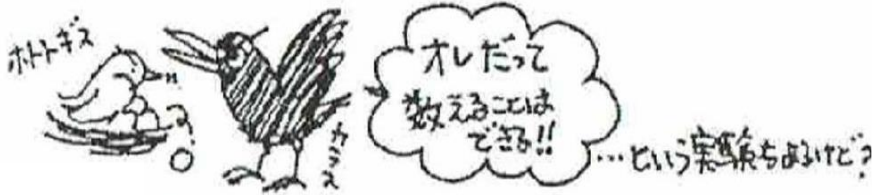 ホトトギス
カラス
オレだって
数えることは
できる!!
…という実験もあるけど?